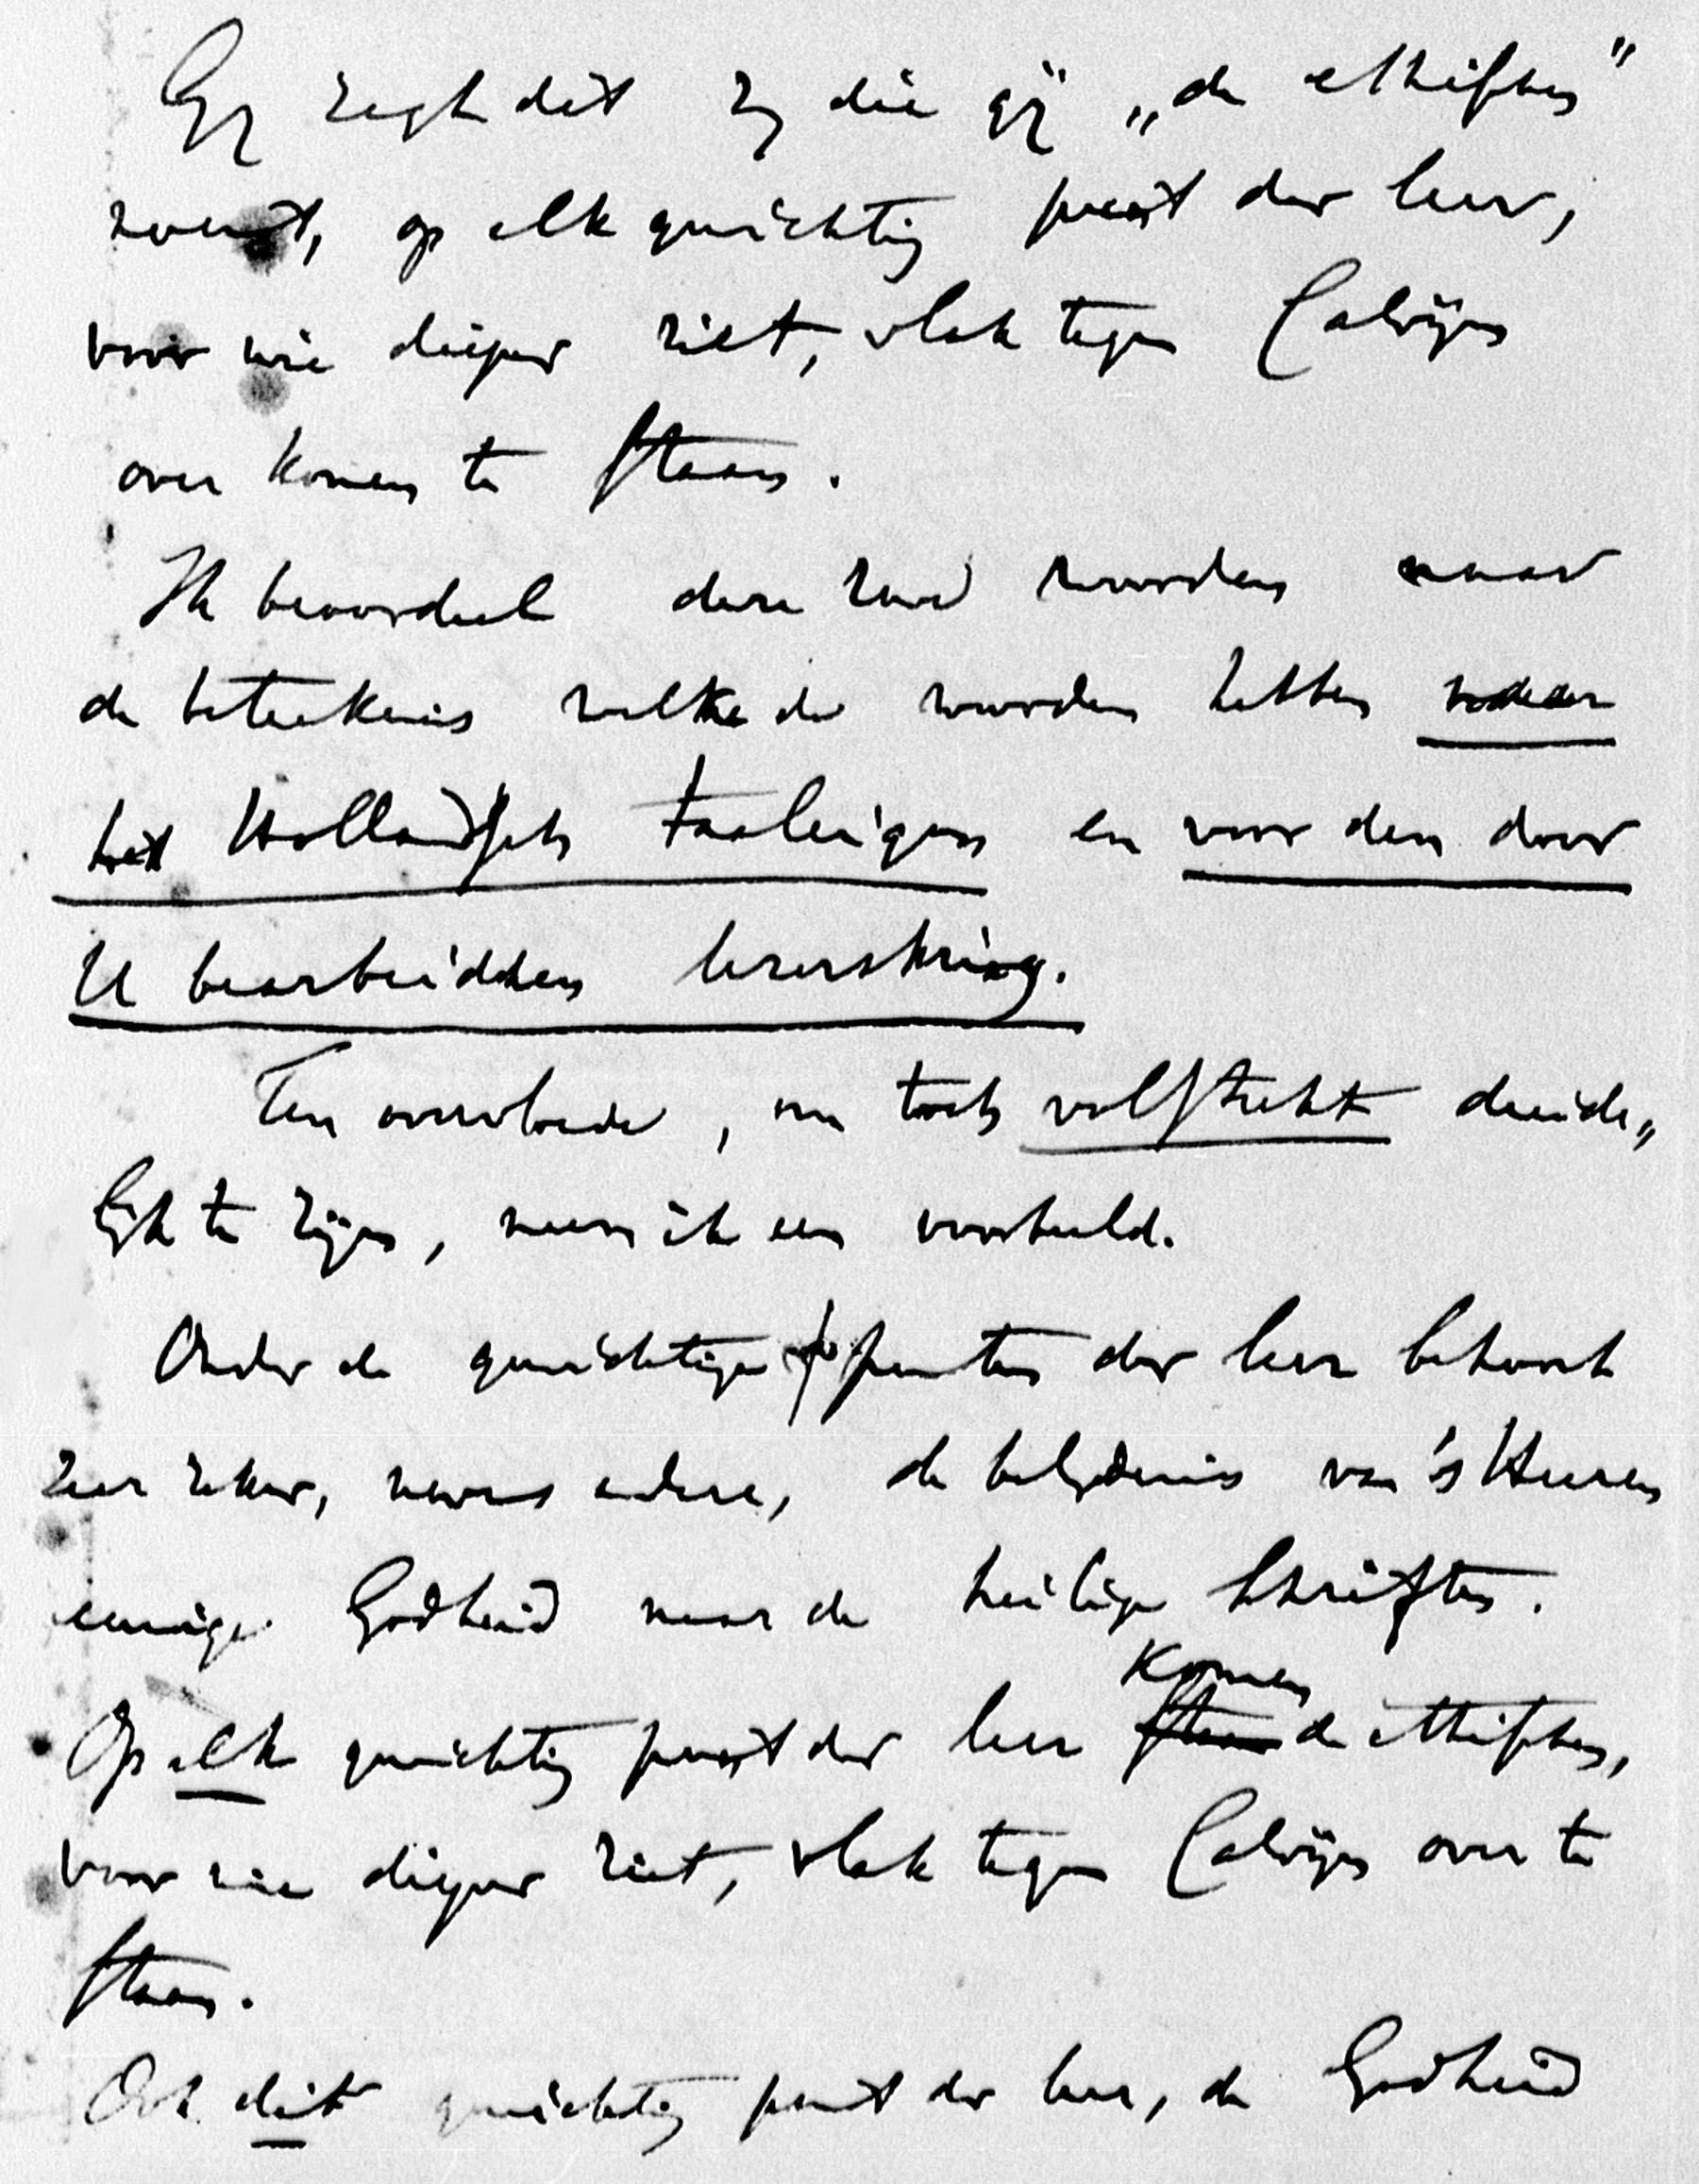 Gij zegt dat zij die gij „de ethischen"
noemt, op elk gewichtig punt der leer,
voor wie dieper ziet, vlak tegen Calvijn
over komen te staan.
Ik beoordeel deze uwe woorden naar
de beteekenis welke de woorden hebben naar
het Hollandsch taaleigen en voor den door
U bearbeidden lezerskring.
Ten overvloede, om toch volstrekt duide„
lijk te zijn, neem ik een voorbeeld.
Onder de gewichtige punten der leer behoort
zeer zeker, nevens andere, de belijdenis van 's Heeren
eeuwige Godheid naar de heilige Schriften.
Op elk gewichtig punt der leer komen de ethischen,
voor wie dieper ziet, vlak tegen Calvijn over te
staan.
Ook dit gewichtig punt der leer, de Godheid